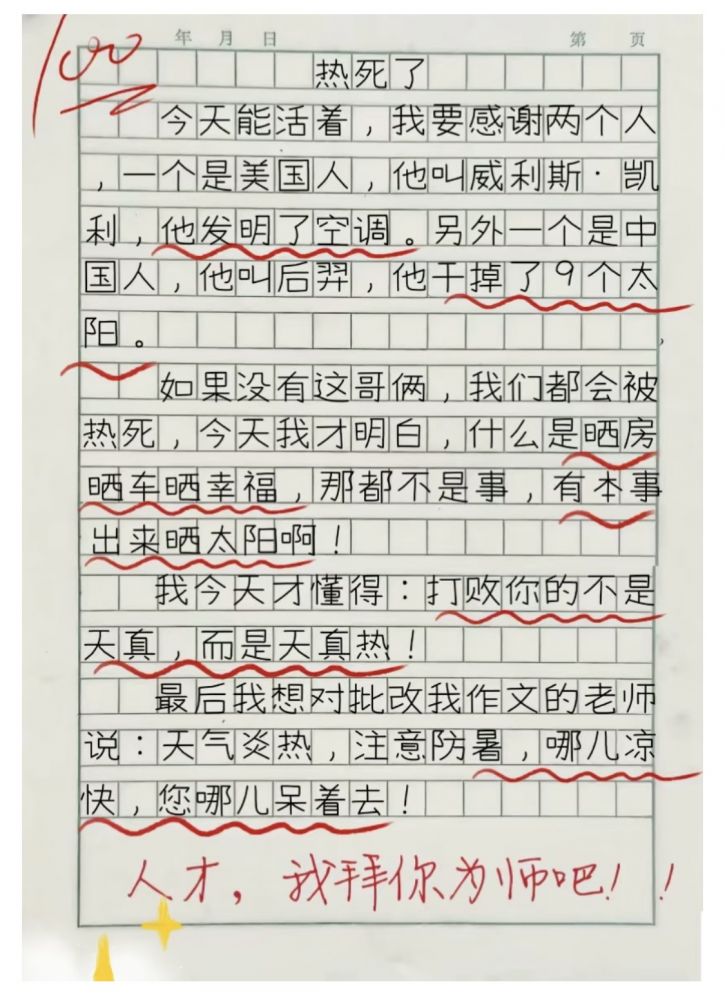 100
年 月 日 第 页
热死了
今天能活着，我要感谢两个人
，一个是美国人，他叫威利斯·凯
利，他发明了空调。另外一个是中
国人，他叫后羿，他干掉了9个太
阳。
如果没有这哥俩，我们都会被
热死，今天我才明白，什么是晒房
晒车晒幸福，那都不是事，有本事
出来晒太阳啊！
我今天才懂得：打败你的不是
天真，而是天真热！
最后我想对批改我作文的老师
说：天气炎热，注意防暑，哪儿凉
快，您哪儿呆着去！
人才，我拜你为师吧！！